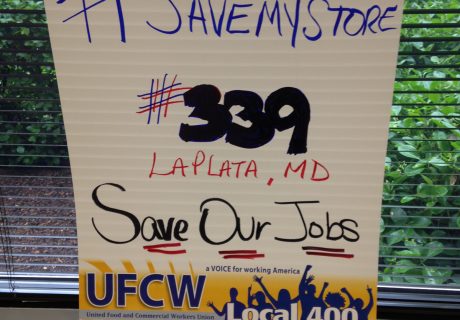 #SAVEMYSTORE
#339
LAPLATA, MD
Save Our Jobs
a VOICE for working America
UFCW
Local 400
United Food and Commercial Workers Union